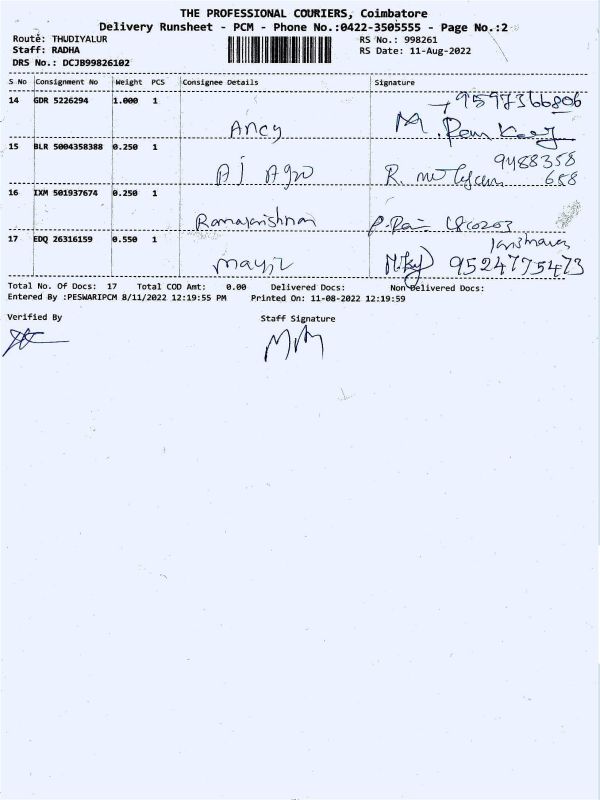 THE PROFESSIONAL COURIERS, Coimbatore
Delivery Runsheet - PCM - Phone No.:0422-3505555 - Page No.:2
Route: THUDIYALUR RS No.: 998261
Staff: RADHA RS Date: 11-Aug-2022
DRS No.: DCJB99826102
S No Consignment No Weight PCS Consignee Details Signature
14 GDR 5226294 1.000 1 9597366806
Ancy M. Ram
15 BLR 5004358388 0.250 1 9488358
AJ Agro R. 658
16 IXM 501937674 0.250 1
Ramakrishnan
17 EDQ 26316159 0.550 1
9524775473
Total No. Of Docs: 17 Total COD Amt: 0.00 Delivered Docs: Non Delivered Docs:
Entered By :PESWARIPCM 8/11/2022 12:19:55 PM Printed On: 11-08-2022 12:19:59
Verified By Staff Signature